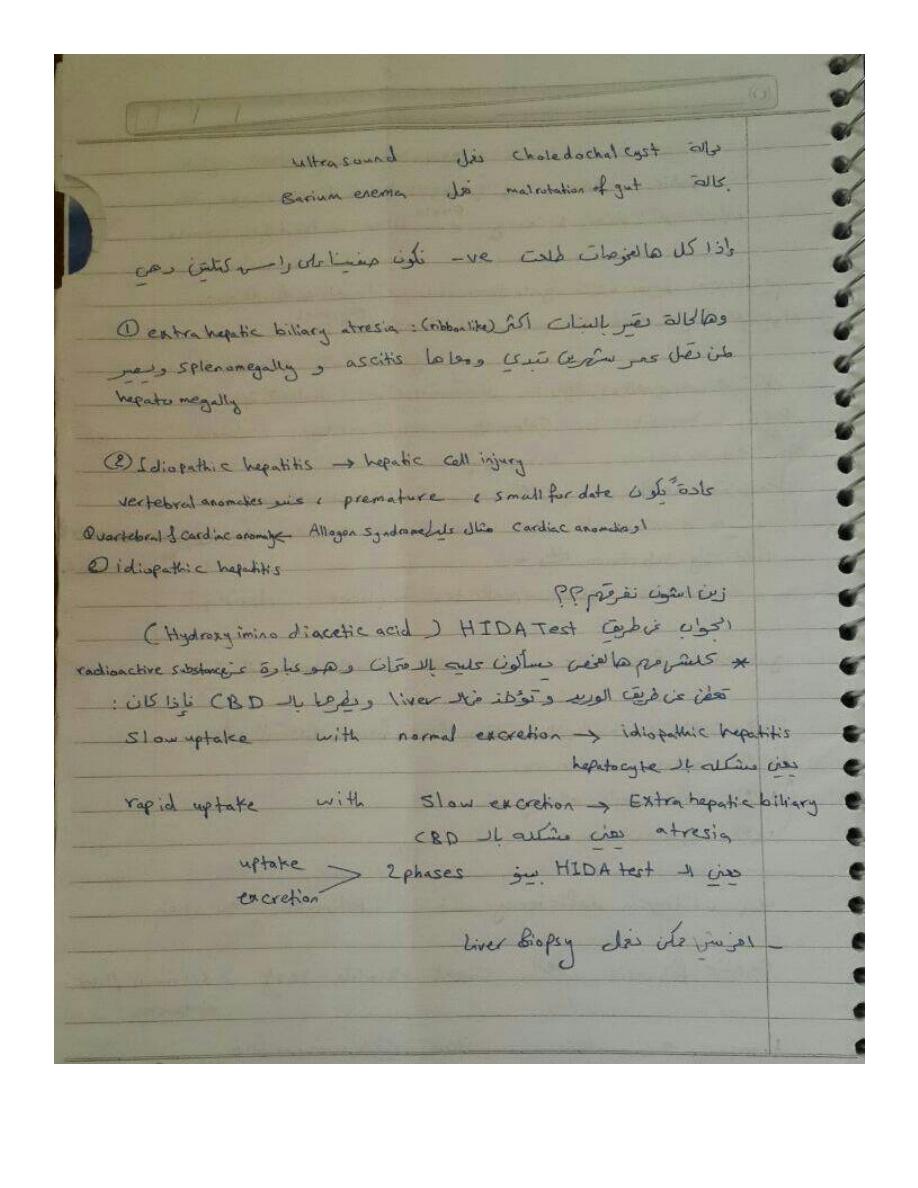 بحالة choledochal cyst نعمل ultrasound
بحالة malrotation of gut نعمل Barium enema
واذا كل هالفحوصات طلعت -ve نكون صفينا على راس كتلتين وهي
① extra hepatic biliary atresia : (ribbon like) وهالحالة تصير بالبنات اكثر
لمن تصل عمر شهرين تبدي ومعاها ascitis و splenomegally ويصير
hepatomegally
② Idiopathic hepatitis → hepatic cell injury
عادةً يكون small for date ، premature ، عنده vertebral anomalies
او cardiac anomalies مثال عليها Allagen syndrome ① vuertebral & cardiac
② idiopathic hepatitis
زين اشلون نفرقهم ؟؟
الجواب عن طريق HIDA Test ( Hydroxy imino diacetic acid )
* كلش مهم هالفحص يسألون عليه بالامتحان وهو عبارة عن radioactive substance
تعطى عن طريق الوريد وتؤخذ من الـ liver ويطرحها بالـ CBD فإذا كان :
Slow uptake with normal excretion → idiopathic hepatitis
يعني مشكله بالـ hepatocyte
rapid uptake with slow excretion → Extra hepatic biliary
atresia يعني مشكله بالـ CBD
يعني الـ HIDA test 2 phases uptake
excretion
- اخر شي ممكن نعمل Liver Biopsy